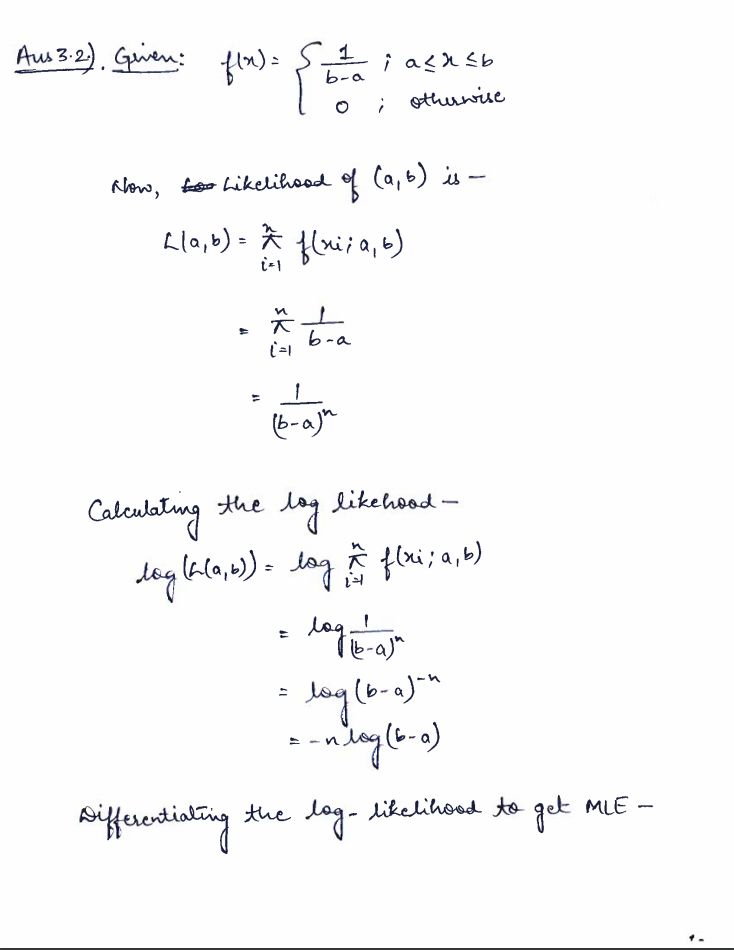 Ans 3.2). Given: f(x) = { 1/(b-a) ; a ≤ x ≤ b
0 ; otherwise
Now, Likelihood of (a,b) is —
L(a,b) = π_{i=1}^{n} f(xi; a,b)
= π_{i=1}^{n} 1/(b-a)
= 1/(b-a)^n
Calculating the log likehood —
log(L(a,b)) = log π_{i=1}^{n} f(xi; a,b)
= log 1/(b-a)^n
= log (b-a)^{-n}
= -n log(b-a)
Differentiating the log-likelihood to get MLE —